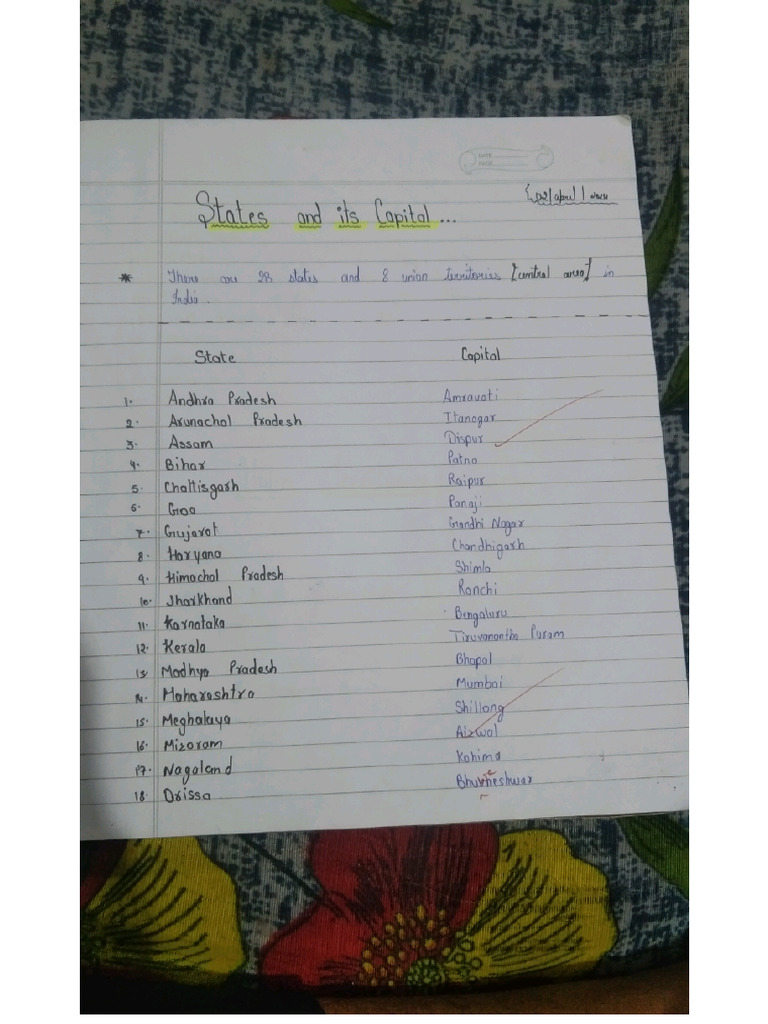 DATE
PAGE
{02/april/
States and its Capital...
* There are 28 states and 8 union territories [central area] in
India.
State Capital
1. Andhra Pradesh Amravati
2. Arunachal Pradesh Itanagar
3. Assam Dispur
4. Bihar Patna
5. Chattisgarh Raipur
6. Goa Panaji
7. Gujarat Gandhi Nagar
8. Haryana Chandhigarh
9. Himachal Pradesh Shimla
10. Jharkhand Ranchi
11. Karnataka Bengaluru
12. Kerala Tiruvanantha Puram
13. Madhya Pradesh Bhopal
14. Maharashtra Mumbai
15. Meghalaya Shillong
16. Mizoram Aizwal
17. Nagaland Kohima
18. Orissa